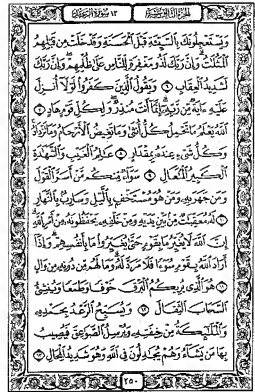 الجزء الثالث عشر ١٣ سورة الرعد
وَيَسْتَعْجِلُونَكَ بِالسَّيِّئَةِ قَبْلَ الْحَسَنَةِ وَقَدْ خَلَتْ مِن قَبْلِهِمُ
الْمَثُلَٰتُ وَإِنَّ رَبَّكَ لَذُو مَغْفِرَةٍ لِّلنَّاسِ عَلَىٰ ظُلْمِهِمْ وَإِنَّ رَبَّكَ
لَشَدِيدُ الْعِقَابِ ٦ وَيَقُولُ الَّذِينَ كَفَرُوا لَوْلَا أُنزِلَ
عَلَيْهِ ءَايَةٌ مِّن رَّبِّهِ إِنَّمَا أَنتَ مُنذِرٌ وَلِكُلِّ قَوْمٍ هَادٍ ٧
اللَّهُ يَعْلَمُ مَا تَحْمِلُ كُلُّ أُنثَىٰ وَمَا تَغِيضُ الْأَرْحَامُ وَمَا تَزْدَادُ
وَكُلُّ شَيْءٍ عِندَهُ بِمِقْدَارٍ ٨ عَٰلِمُ الْغَيْبِ وَالشَّهَٰدَةِ
الْكَبِيرُ الْمُتَعَالِ ٩ سَوَاءٌ مِّنكُم مَّنْ أَسَرَّ الْقَوْلَ
وَمَن جَهَرَ بِهِ وَمَنْ هُوَ مُسْتَخْفٍ بِالَّيْلِ وَسَارِبٌ بِالنَّهَارِ
١٠ لَهُ مُعَقِّبَٰتٌ مِّن بَيْنِ يَدَيْهِ وَمِنْ خَلْفِهِ يَحْفَظُونَهُ مِنْ أَمْرِ اللَّهِ
إِنَّ اللَّهَ لَا يُغَيِّرُ مَا بِقَوْمٍ حَتَّىٰ يُغَيِّرُوا مَا بِأَنفُسِهِمْ وَإِذَا
أَرَادَ اللَّهُ بِقَوْمٍ سُوءًا فَلَا مَرَدَّ لَهُ وَمَا لَهُم مِّن دُونِهِ مِن وَالٍ
١١ هُوَ الَّذِي يُرِيكُمُ الْبَرْقَ خَوْفًا وَطَمَعًا وَيُنشِئُ
السَّحَابَ الثِّقَالَ ١٢ وَيُسَبِّحُ الرَّعْدُ بِحَمْدِهِ
وَالْمَلَٰئِكَةُ مِنْ خِيفَتِهِ وَيُرْسِلُ الصَّوَٰعِقَ فَيُصِيبُ
بِهَا مَن يَشَاءُ وَهُمْ يُجَٰدِلُونَ فِي اللَّهِ وَهُوَ شَدِيدُ الْمِحَالِ ١٣
٢٥٠